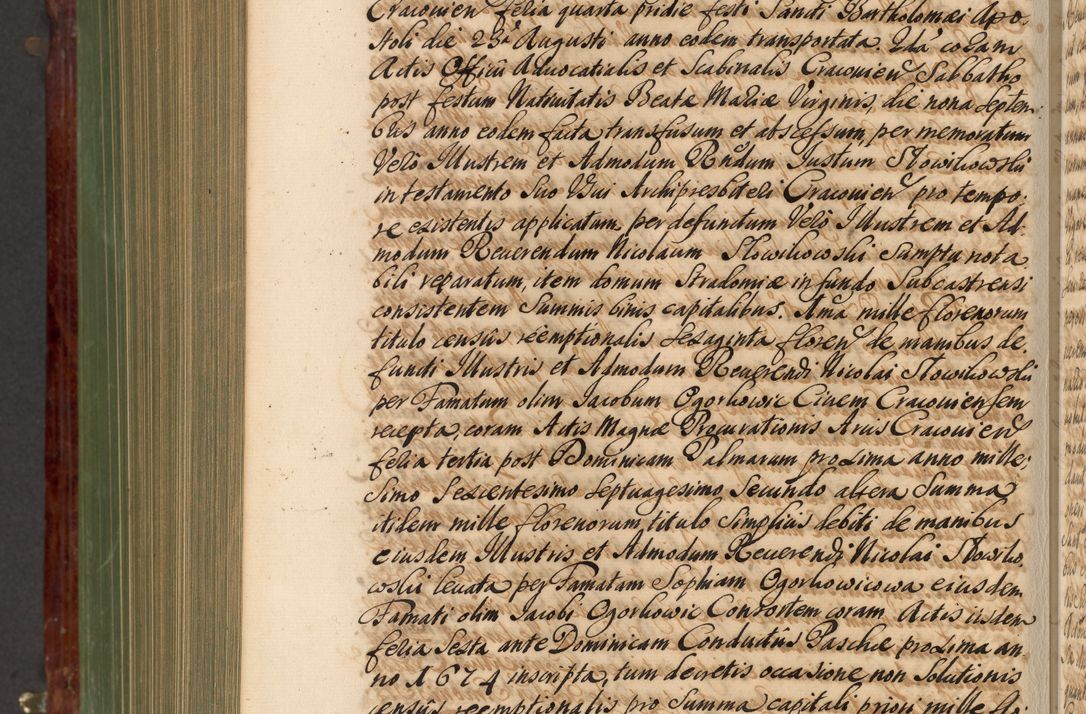 Cracouien feria quarta pridie festi Sancti Bartholomæi Apo-
stoli die 23a Augusti anno eodem transportata. Ita coram
Actis Officii Aduocatialis et Scabinalis Cracouien Sabbatho
post festum Natiuitatis Beatæ Mariæ Virginis, die nona Septem
bris anno eodem facta transfusum et abscessum, per memoratum
Velo Illustrem et Admodum Rndum Justum Słowikowski
in testamento Suo Vsui Archipresbiteri Cracouien pro tempo:
re existentis applicatum, per defunctum Velo Illustrem et Ad-
modum Reuerendum Nicolaum Słowikowski sumptu nota
bili reparatum, item domum Stradomiæ in fundo Subcastrensi
consistentem Summis binis capitalibus. Ama mille florenorum
titulo censûs reemptionalis Sexaginta floren de manibus de
functi Illustris et Admodum Reuerendi Nicolai Słowikowski
per Famatum olim Jacobum Ogorkowic Ciuem Cracouiensem
recepta, coram Actis Magnæ Procurationis Arcis Cracouien
feria tertia post Dominicam Palmarum proxima anno mille:
simo Sexcentesimo Septuagesimo Secundo altera Summa
itidem mille florenorum, titulo Simplicis debiti de manibus
eiusdem Illustris et Admodum Reuerendi Nicolai Słowiko
wski leuata per Famatam Sophiam Ogorkowicowa eiusdem
Famati olim Jacobi Ogorkowic Consortem coram Actis iisdem
feria Sexta ante Dominicam Conductûs Paschæ proxima an
no 1674 inscripta, tum decretis occasione non Solutionis
censûs reemptionalis pro Summa capitali priori mille flo: